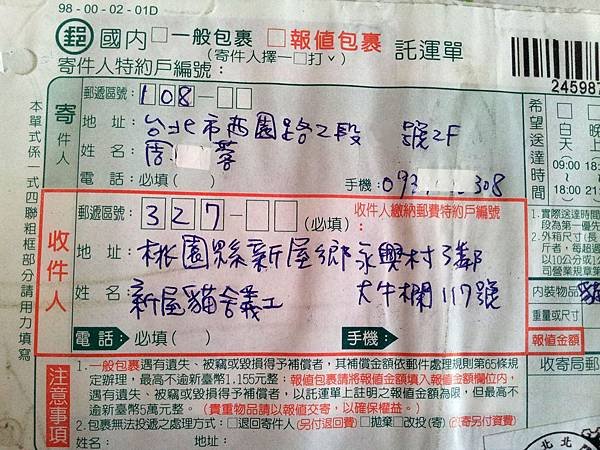 98-00-02-01D
郵 國內 □一般包裹 □報值包裹 託運單
(寄件人擇一□打ˇ)
寄件人特約戶編號：
24598
本單式係一式四聯粗框部分請用力填寫
寄件人
郵遞區號：108-□□
地址：台北市西園路2段 號2F
姓名：周 蓉
電話：必填( ) 手機：093 308
希望送達時間
□ □
白天 晚上
09:00 18:00
18:00 21
收件人
郵遞區號：327-□□(必填) 收件人繳納郵費特約戶編號
地址：桃園縣新屋鄉永興村3鄰
大牛欄117號
姓名：新屋貓舍義工
電話：必填( ) 手機：
1.實際送達時間
段為第一優先
2.外箱尺寸(長
斤者，每超過
以10公分/1公
司營業規章
內裝物品 貓
重量或尺寸
報值金額
收寄局郵
注意事項
1.一般包裹遇有遺失、被竊或毀損得予補償者，其補償金額依郵件處理規則第65條規
定辦理，最高不逾新臺幣1,155元整；報值包裹請將報值金額填入報值金額欄位內，
遇有遺失、被竊或毀損得予補償者，以託運單上註明之報值金額為限，但最高不
逾新臺幣5萬元整。(貴重物品請以報值交寄，以確保權益。)
2.包裹無法投遞之處理方式：□退回寄件人(另付退回費) □拋棄 □改投(寄)(改寄另付資費)
姓名： 地址：
北 北